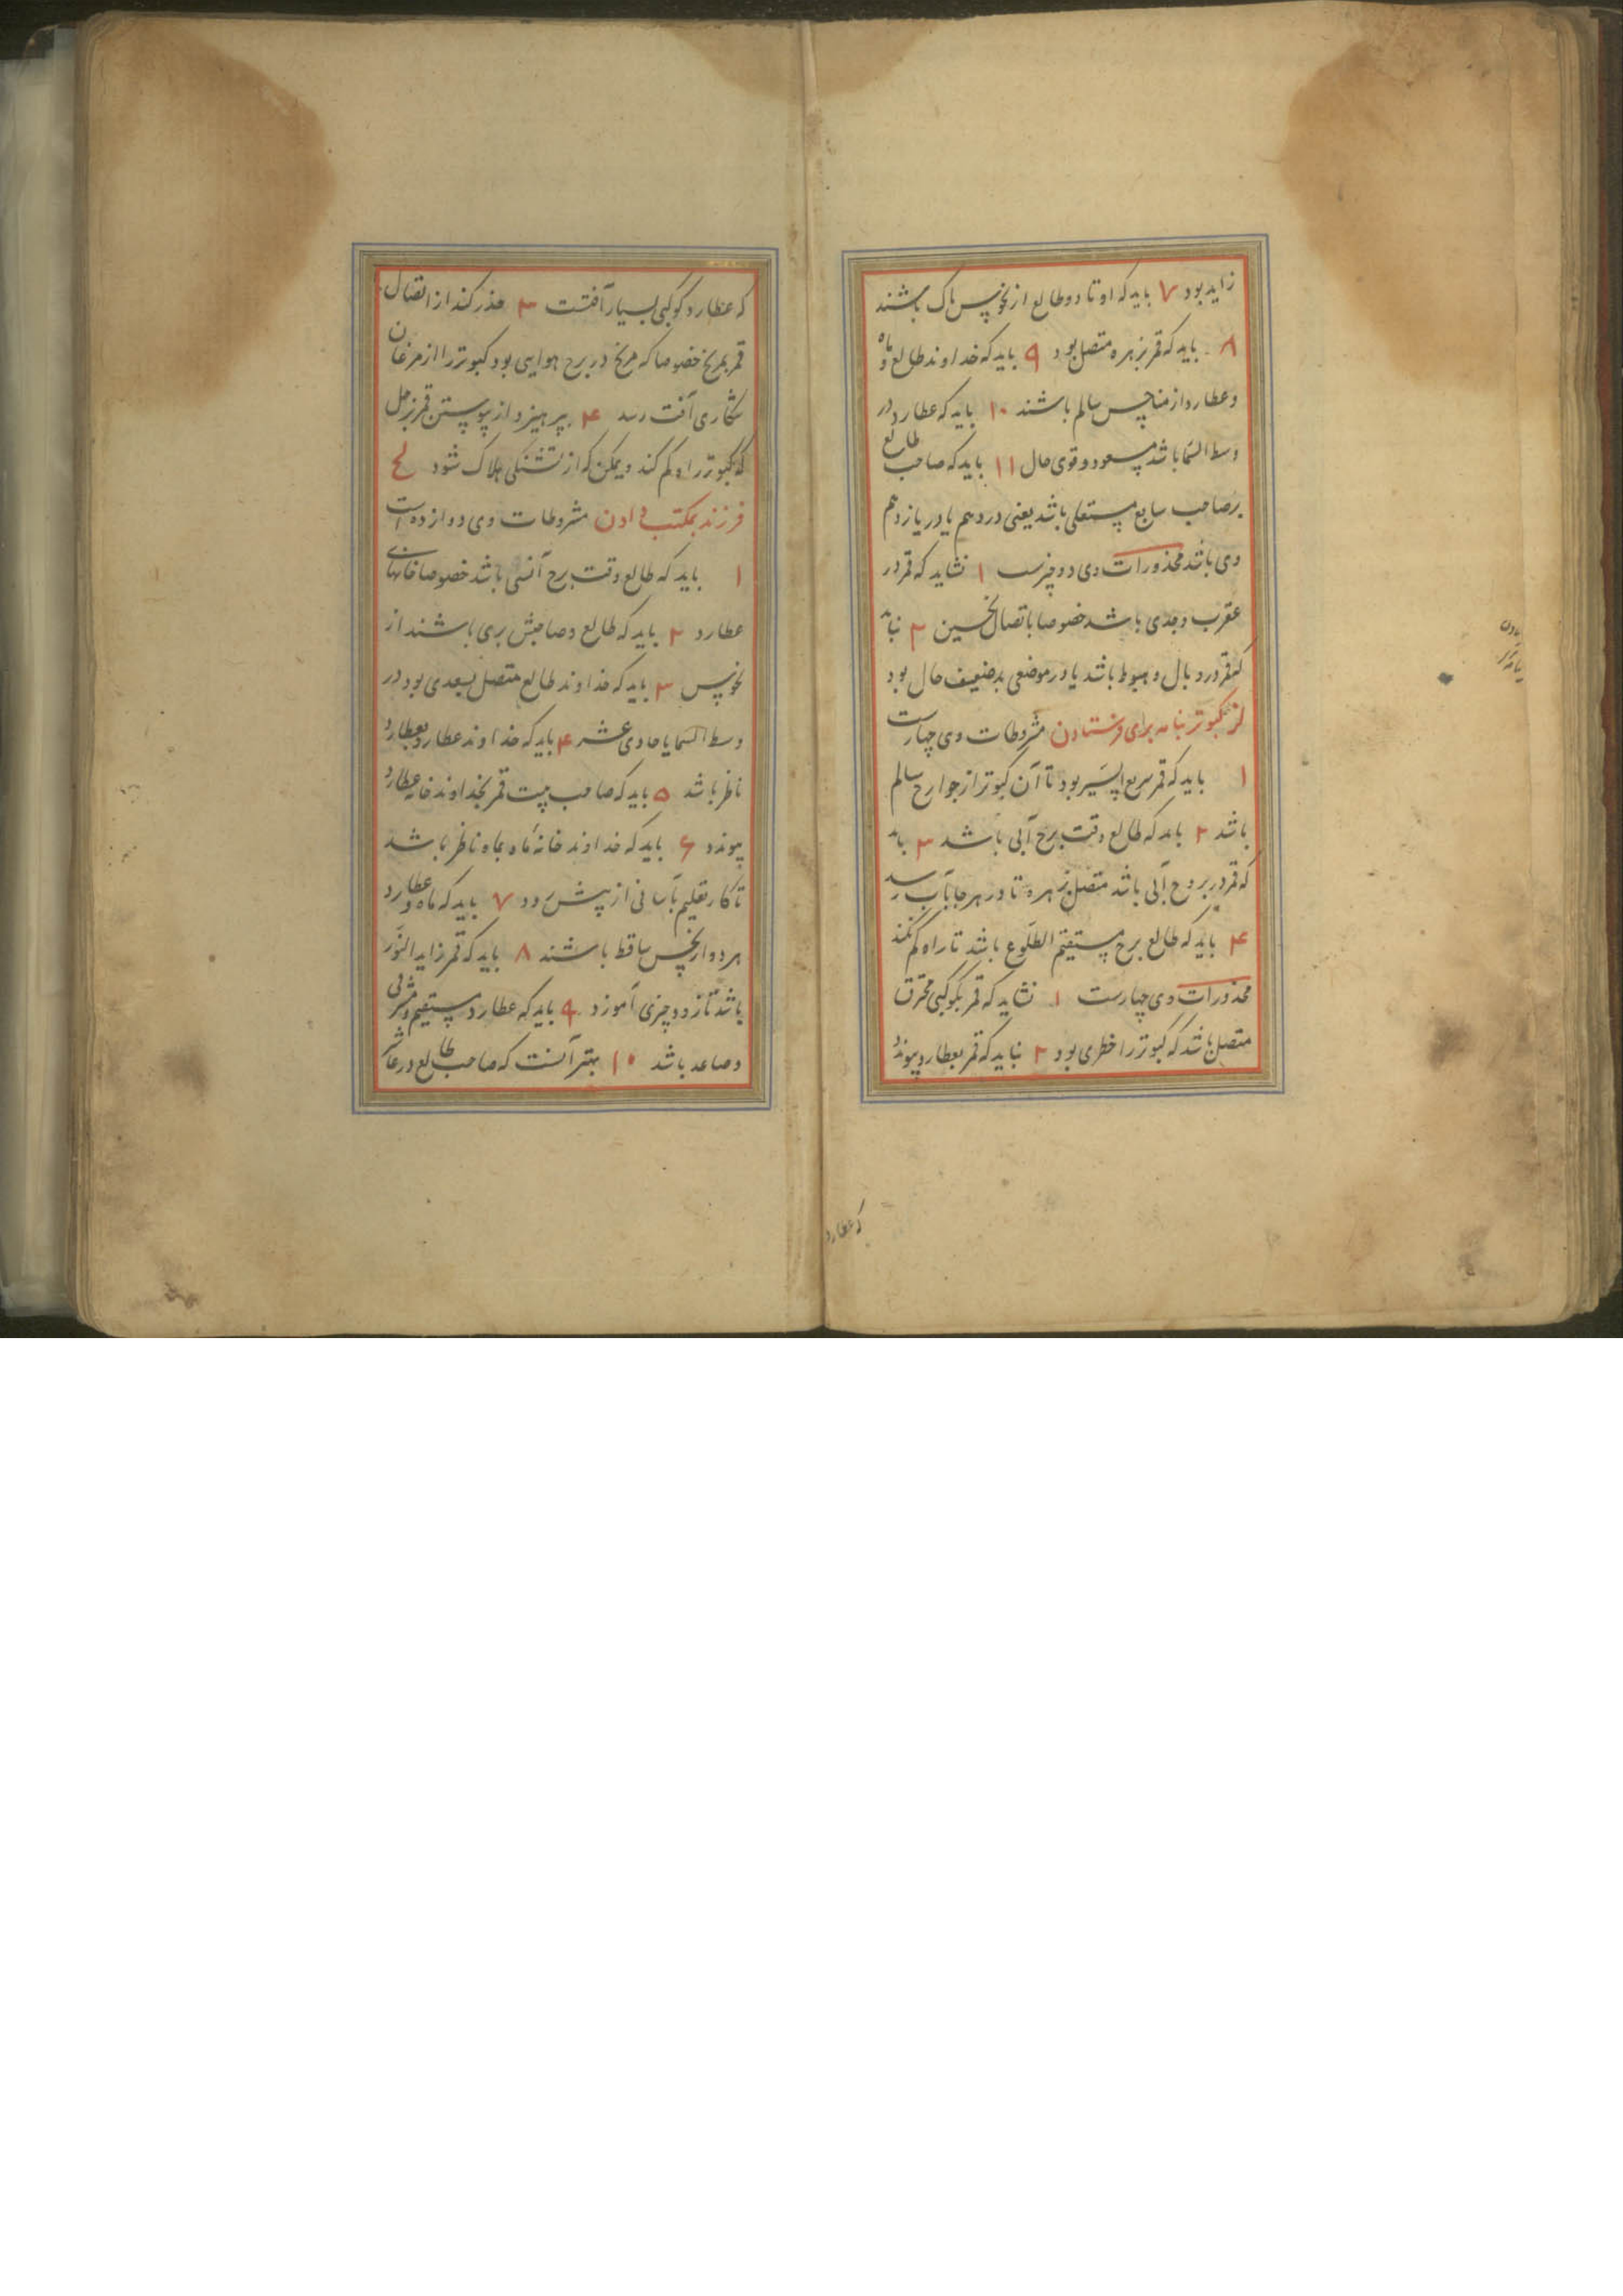 زاید بود ۷ باید که اوتاد و طالع از نحوس پاک باشند
۸ باید که قمر بزهره متصل بود ۹ باید که خداوند طالع و ماه
و عطارد از مناحس سالم باشند ۱۰ باید که عطارد در
وسط السما باشد مسعود و قوی حال ۱۱ باید که صاحب طالع
بر صاحب سابع مستعلی باشد یعنی در دهم یا در یازدهم
وی باشد محذورات وی دو چیزست ۱ نشاید که قمر در
عقرب و جدی باشد خصوصا باتصال نحسین ۲ نباید
که قمر در وبال و هبوط باشد یا در موضعی بد ضعیف حال بود
لز کبوتر نامه برای فرستادن مشروطات وی چهارست
۱ باید که قمر سریع السیر بود تا آن کبوتر از جوارح سالم
باشد ۲ باید که طالع وقت برج آبی باشد ۳ باید
که قمر در بروج آبی باشد متصل بزهره تا در هر جا بآب رسد
۴ باید که طالع برج مستقیم الطلوع باشد تا راه گم نکند
محذورات وی چهارست ۱ نشاید که قمر بکوکبی محترق
متصل باشد که کبوتر را خطری بود ۲ نباید که قمر بعطارد پیوندد
که عطارد
که عطارد کوکبی بسیار آفتست ۳ حذر کند از اتصال
قمر بمریخ خصوصا که مریخ در برج هوایی بود کبوتر را از مرغان
شکاری آفت رسد ۴ بپرهیزد از پیوستن قمر بزحل
که کبوتر راه گم کند و یمکن که از تشنگی هلاک شود لح
فرزند بمکتب دادن مشروطات وی دوازده است
۱ باید که طالع وقت برج آنسی باشد خصوصا خانهای
عطارد ۲ باید که طالع و صاحبش بری باشند از
نحوس ۳ باید که خداوند طالع متصل بسعدی بود در
وسط السما یا حادی عشر ۴ باید که خداوند عطارد بعطارد
ناظر باشد ۵ باید که صاحب بیت قمر بخداوند خانه عطارد
پیوندد ۶ باید که خداوند خانهٔ ماه بماه ناظر باشد
تا کار تعلیم بآسانی از پیش رود ۷ باید که ماه و عطارد
هر دو از نحس ساقط باشند ۸ باید که قمر زاید النور
باشد تا زود چیزی آموزد ۹ باید که عطارد مستقیم و مشرقی
و صاعد باشد ۱۰ بهتر آنست که صاحب طالع در عاشر